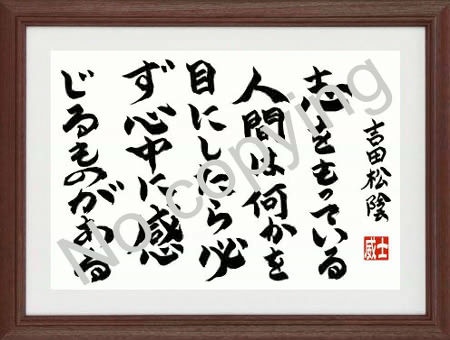 吉田松陰
志をもっている
人間は何かを
目にしたら必
ず心中に、感
じるものがある
士威
No copying